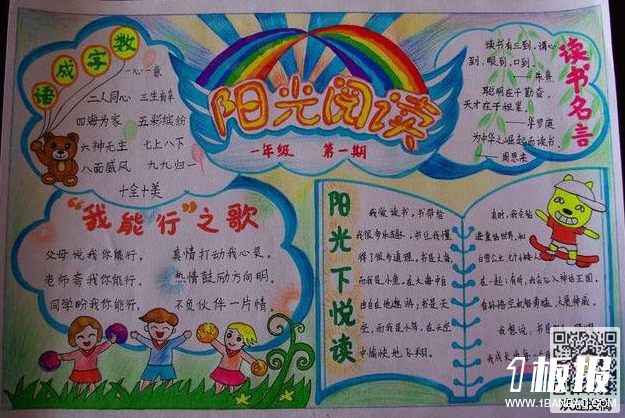 数字成语
一心一意
二人同心 三生有幸
四海为家 五彩缤纷
六神无主 七上八下
八面威风 九九归一
十全十美
阳光阅读
一年级 第一期
读书名言
读书有三到，谓心
到，眼到，口到。
——朱熹
聪明在于勤奋，
天才在于积累。
——华罗庚
为中华之崛起而读书。
——周恩来
“我能行”之歌
父母说我你能行， 真情打动我心灵。
老师斋我你能行， 热情鼓励方向明。
同学盼我你能行， 不负伙伴一片情。
阳光下悦读
我爱读书，书带给
我很多乐趣，书让我懂
得了很多道理。书是大海，
而我是小鱼，在大海中自
由自在地遨游；书是天
空，而我是小鸟，在天空
中愉快地飞翔。
有时，我会钻
进童话世界，和
白雪公主、七个小矮人
在一起；有时，我会步入神话王国，
我想说，书
我成长
1板报
WWW.1BANBAO.COM